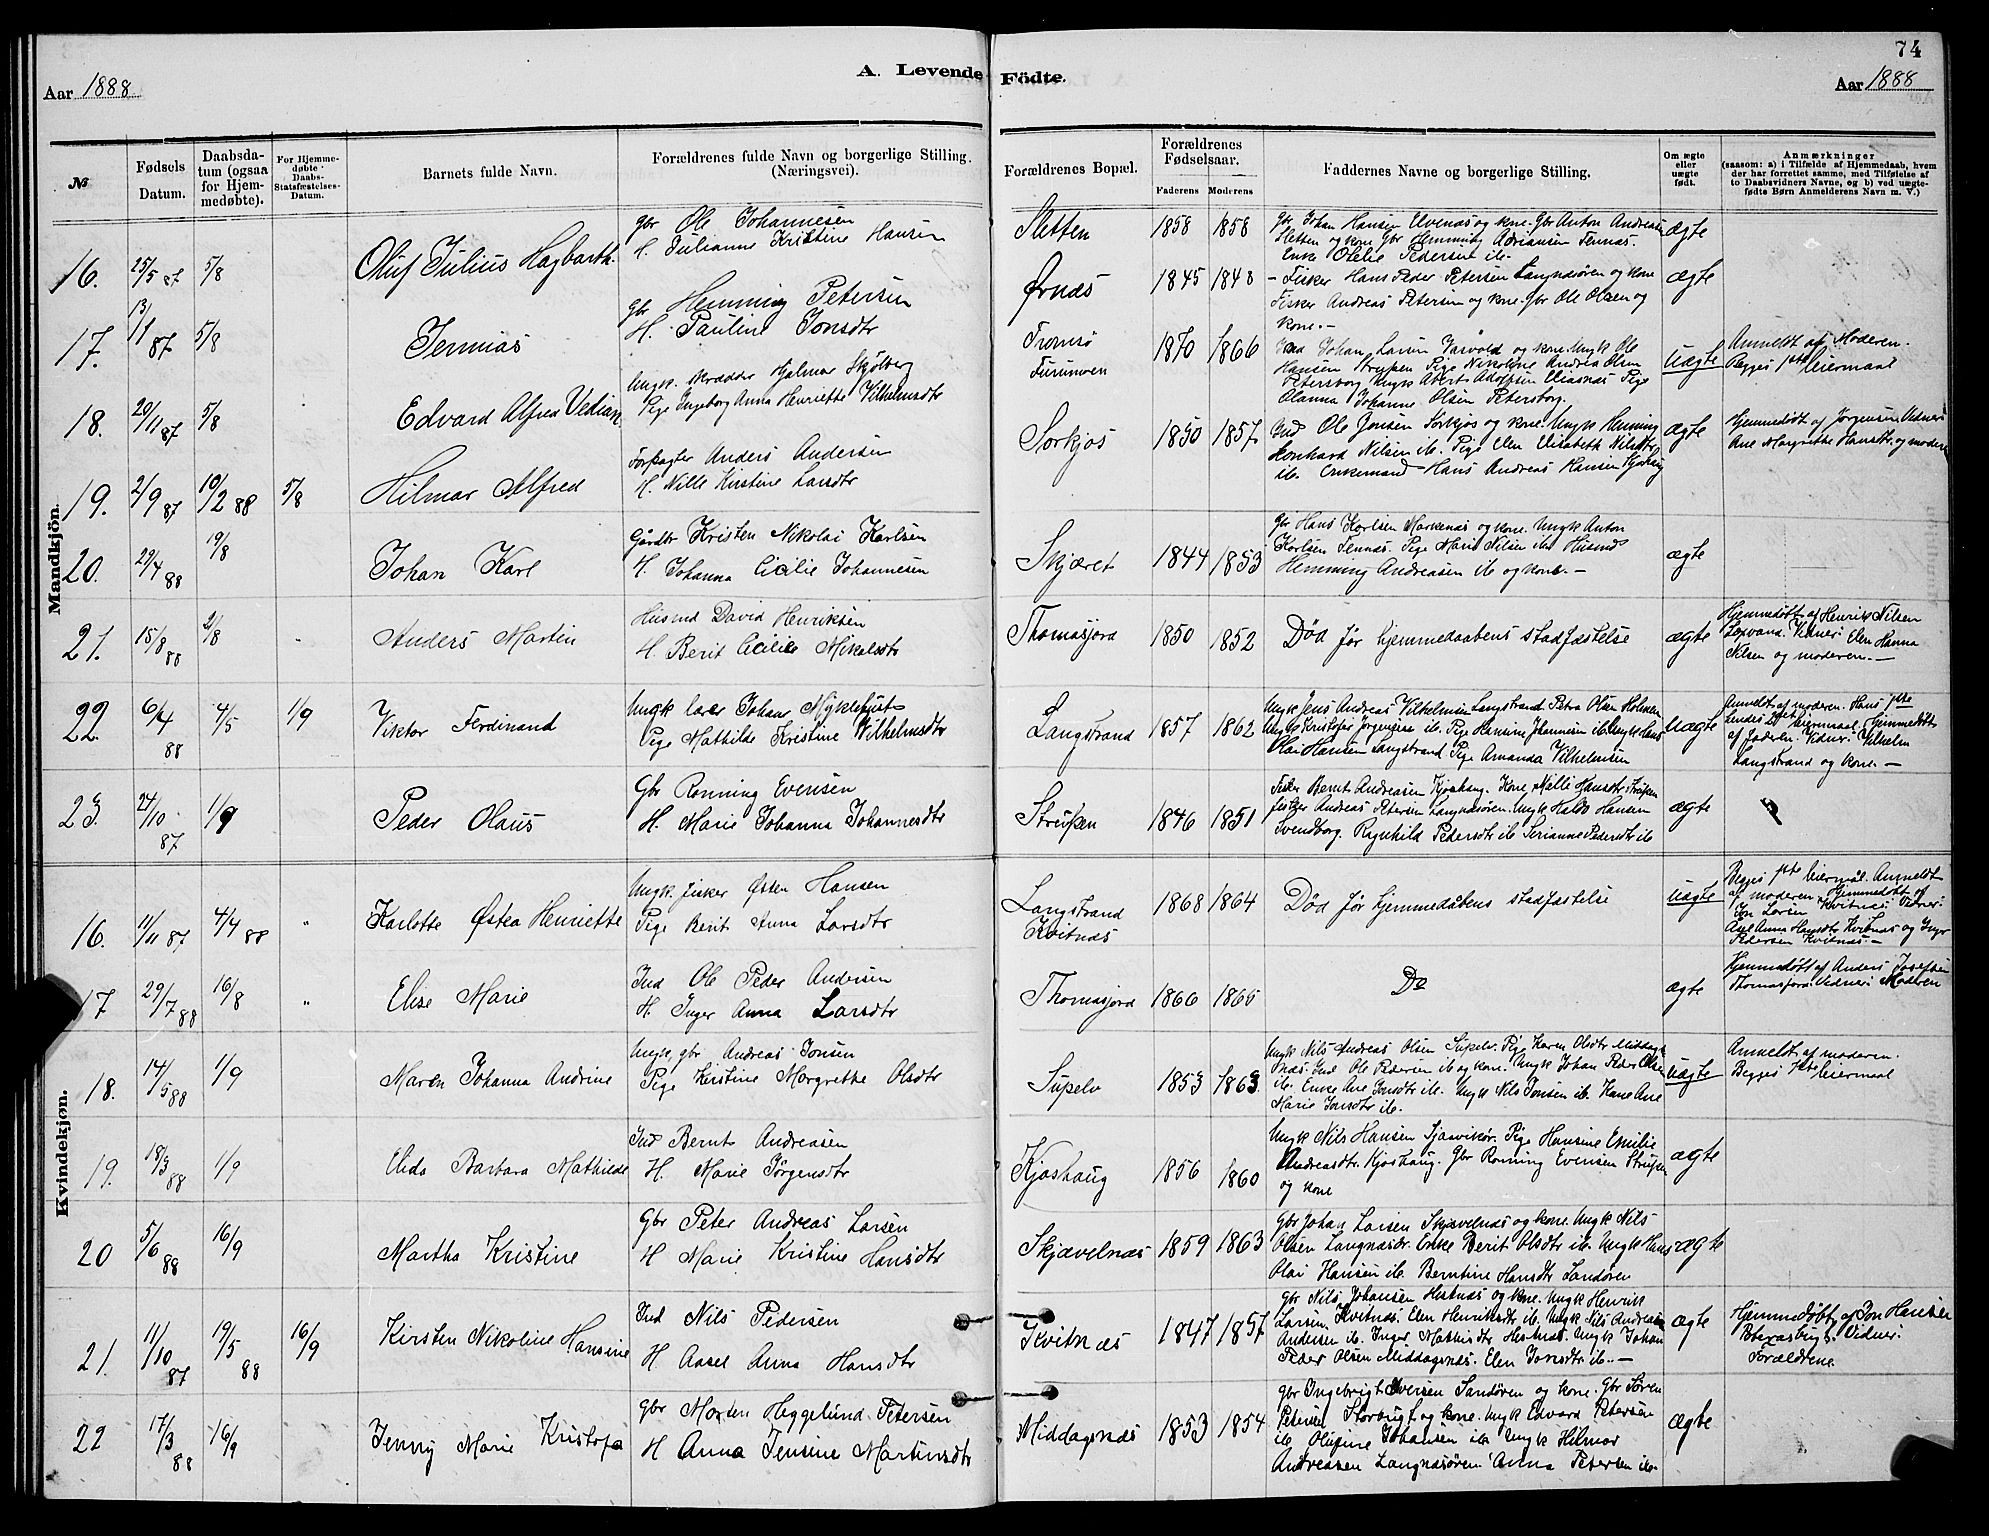 74
A. Levende Födte.
Aar 1888
Aar 1888
№
Fødsels Datum.
Daabsdatum (ogsaa for Hjemmedøbte).
For Hjemmedøbte Daabs-Statsfæstelses-Datum.
Barnets fulde Navn.
Forældrenes fulde Navn og borgerlige Stilling. (Næringsvei).
Forældrenes Bopæl.
Forældrenes Fødselsaar.
Faderens Moderens
Faddernes Navne og borgerlige Stilling.
Om ægte eller uægte født.
Anmærkninger
(saasom: a) i Tilfælde af Hjemmedaab, hvem
der har forrettet samme, med Tilføielse af
to Daabsvidners Navne, og b) ved uægte-
fødte Børn Anmelderens Navn m. V.)
Mandkjön.
16. 25/5 87 5/8 Oluf Julius Hagbarth.
Gbr Ole Johannesen
H. Julianne Kristine Hansen
Sletten 1858 1858
Gbr Johan Hansen Elvenæs og kone. Gbr Anton Andreasen
Sletten og kone Gbr Hemming Adriansen Tennæs.
Enke Ovelie Pedersen ib.
ægte
17. 13/11 87 5/8 Jermias
Gbr Hemming Petersen
H. Pauline Jonsdtr
Ørnæs 1845 1848
Fisker Hans Peder Petersen Langnæsören og kone
Fisker Andreas Petersen og kone. Gbr Ole Olsen og
kone.
ægte
18. 20/11 87 5/8 Edvard Alfred Vedian
Ungk. skrædder Hjalmar Skjölberg
Pige Ingeborg Anna Henriette Vilhelmsdtr
Tromsö
Furumoen 1870 1866
Johan Larsen og kone. Ungk Ole
Hansen Strupen Pige Nikoline Andrea Olsen
Petersborg Ungk Albert Adolfsen Eliasnæs Pige
Olanna Johanne Olsen Petersborg.
Uægte
Anmeldt af Moderen.
Begges 1ste leiermaal
19. 2/9 87 10/2 88 5/8 Hilmar Alfred
Forpagter Anders Andersen
H. Nille Kirstine Larsdtr
Sørkjos 1850 1857
Ind Ole Jensen Sørkjos og kone. Ungk Henning
Leonhard Nilsen ib. Pige Elen Elisabeth Nilsdtr
ib. Enkemand Hans Andreas Hansen
ægte
Hjemmedøbt af Jørgensen Vidner:
Ane Margrethe Hansdtr. og moderen
20. 29/4 88 19/8 Johan Karl
Gårdbr Kristen Nikolai Karlsen
H. Johanna Cicilie Johannesen
Skjæret 1844 1853
Gbr Hans Karlsen Markenæs og kone. Ungk Anton
Karlsen Tennæs. Pige Marie Nilsen ib. Husmd
Hemming Andreasen ib og kone.
ægte
21. 15/8 88 21/8 Anders Martin
Husmd David Henriksen
H. Berit Cicilie Mikalsdtr
Thomasjord 1850 1852
Død før hjemmedaabens stadfæstelse
ægte
Hjemmedøbt af Henrik Nilsen
Vidner: Elen Hanna
Nilsen og moderen.
22. 6/4 88 4/5 1/9 Viktor Ferdinand
Ungk lærer Johan Myklebust
Pige Mathilde Kristine Vilhelmsdtr
Langstrand 1857 1862
Ungk Jens Andreas Vilhelmsen Langstrand Petra Olsen Holmen
Ungk Kristofer Jørgensen ib. Pige Hansine Johannesen ib. Ungk Hans
Olai Hansen Langstrand Pige Amanda Vilhelmsen
Uægte
Anmeldt af moderen. Hans 1ste
hendes 2det leiermaal. Hjemmedøbt
af faderen. Vidner: Vilhelm
Langstrand og kone.
23. 27/10 87 1/9 Peder Olaus
Gbr Rønning Evensen
H. Marie Johanna Johannesdtr
Strupen 1846 1851
Fisker Bernt Andreasen Kjoshaug. Kone Nille Hansdtr Strupen
fisker Andreas Petersen Langnæsören. Ungk Haldo Hansen
Svendborg. Ragnhild Pedersdtr ib Serianne Pedersdtr ib
ægte
Kvindekjön.
16. 11/11 87 4/4 88 " Karlotte Østea Henriette
Ungk. fisker Østen Hansen
Pige Berit Anna Larsdtr
Langstrand
Kvitnæs 1868 1864
Død før hjemmedåbens stadfæstelse
Uægte
Begges 1ste leiermål. Anmeldt
af moderen Hjemmedøbt af
Jon Larsen Kvitnæs. Vidner:
Asel Anna Hansdtr Kvitnæs og Inger
Pedersen Kvitnæs.
17 29/7 88 16/8 " Elise Marie
Ind Ole Peder Andersen
H. Inger Anna Larsdtr
Thomasjord 1866 1865
Do
ægte
Hjemmedøbt af Anders Josefsen
Thomasjord Vidner: Moderen
18. 14/5 88 1/9 Maren Johanna Andrine
Ungk, gbr Andreas Jonsen
Pige Kirstine Margrethe Olsdtr
Supelv 1853 1863
Ungk Nils Andreas Olsen Supelv. Pige Karen Olsdtr Middags-
næs. Ind Ole Pedersen ib og kone. Ungk Johan Peder Olsen
ib. Enke Ane Jonsdtr ib. Ungk Nils Jonsen ib. Kone Ane
Marie Jonsdtr ib.
Uægte
Anmeldt af moderen.
Begges 1ste leiermaal
19. 18/3 88 1/9 Elida Barbara Mathilde
Ind Bernt Andreasen
H. Marie Jörgensdtr
Kjoshaug 1856 1860
Ungk Nils Hansen Sjåsvikör. Pige Hansine Emilie
Andreasdtr. Kjoshaug. Gbr Rønning Evensen Strupen
og kone
ægte
20 5/6 88 16/9 Martha Kristine
Gbr Peter Andreas Larsen
H Marie Kristine Hansdtr
Skjævelnæs 1859 1863
Gbr Johan Larsen Skjævelnæs og kone. Ungk Nils
Olsen Langnæsör. Enke Berit Olsdtr ib. Ungk Hans
Olai Hansen ib. Berntine Hansdtr Sandören
ægte
21. 11/10 87 19/5 88 16/9 Kirsten Nikoline Hansine
Ind Nils Pedersen
H Aasel Anna Hansdtr
Kvitnæs 1847 1857
Gbr Nils Johansen Hestnæs og kone. Ungk Henrik
Larsen Kvitnæs. Elen Henriksdtr ib. Ungk Nils Andreas
Andersen ib. Inger Mathisdtr Hestnæs. Ungk Johan
Peder Olsen Middagsnæs. Elen Jonsdtr ib.
ægte
Hjemmedøbt af Jon Hansen
Vidner:
Forældrene.
22 17/3 88 16/9 Jenny Marie Kristofa
Gbr Morten Heggelund Petersen
H Anna Jensine Martinsdtr
Middagsnæs 1853 1854
Gbr Ingebrigt Iversen Sandören og kone. Gbr Sören
Petersen Storbugt og kone. Ungk Edvard Petersen
ib Olufine Johansen ib Ungk Hilmar
Andreasen Langnæsören Anna Petersen ib.
ægte